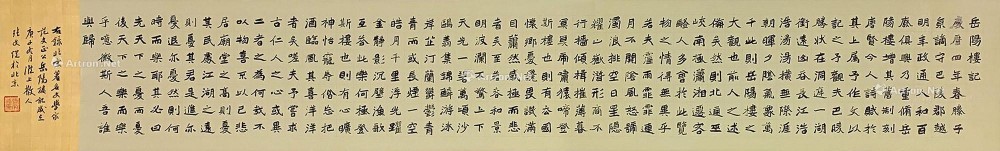 岳陽樓記
慶曆四年春滕子
京謫守巴陵郡越
明年政通人和百
廢俱興乃重修岳
陽樓增其舊制刻
唐賢今人詩賦於
其上屬予作文以
記之予觀夫巴陵
勝狀在洞庭一湖
銜遠山吞長江浩
浩湯湯橫無際涯
朝暉夕陰氣象萬
千此則岳陽樓之
大觀也前人之述
備矣然則北通巫
峽南極瀟湘遷客
騷人多會於此覽
物之情得無異乎
若夫霪雨霏霏連
月不開陰風怒號
濁浪排空日星隱
曜山岳潛形商旅不
行檣傾楫摧薄暮
冥冥虎嘯猿啼登
斯樓也則有去國
懷鄉憂讒畏譏滿
目蕭然感極而悲
者矣至若春和景
明波瀾不驚上下
天光一碧萬頃沙
鷗翔集錦鱗游泳
岸芷汀蘭鬱鬱青
青而或長煙一空
皓月千里浮光躍
金靜影沉璧漁歌
互答此樂何極登
斯樓也則有心曠
神怡寵辱偕忘把
酒臨風其喜洋洋
者矣嗟夫予嘗求
古仁人之心或異
二者之為何哉不
以物喜不以己悲
居廟堂之高則憂
其民處江湖之遠
則憂其君是進亦
憂退亦憂然則何
時而樂耶其必曰
先天下之憂而憂
後天下之樂而樂
乎噫微斯人吾誰
與歸